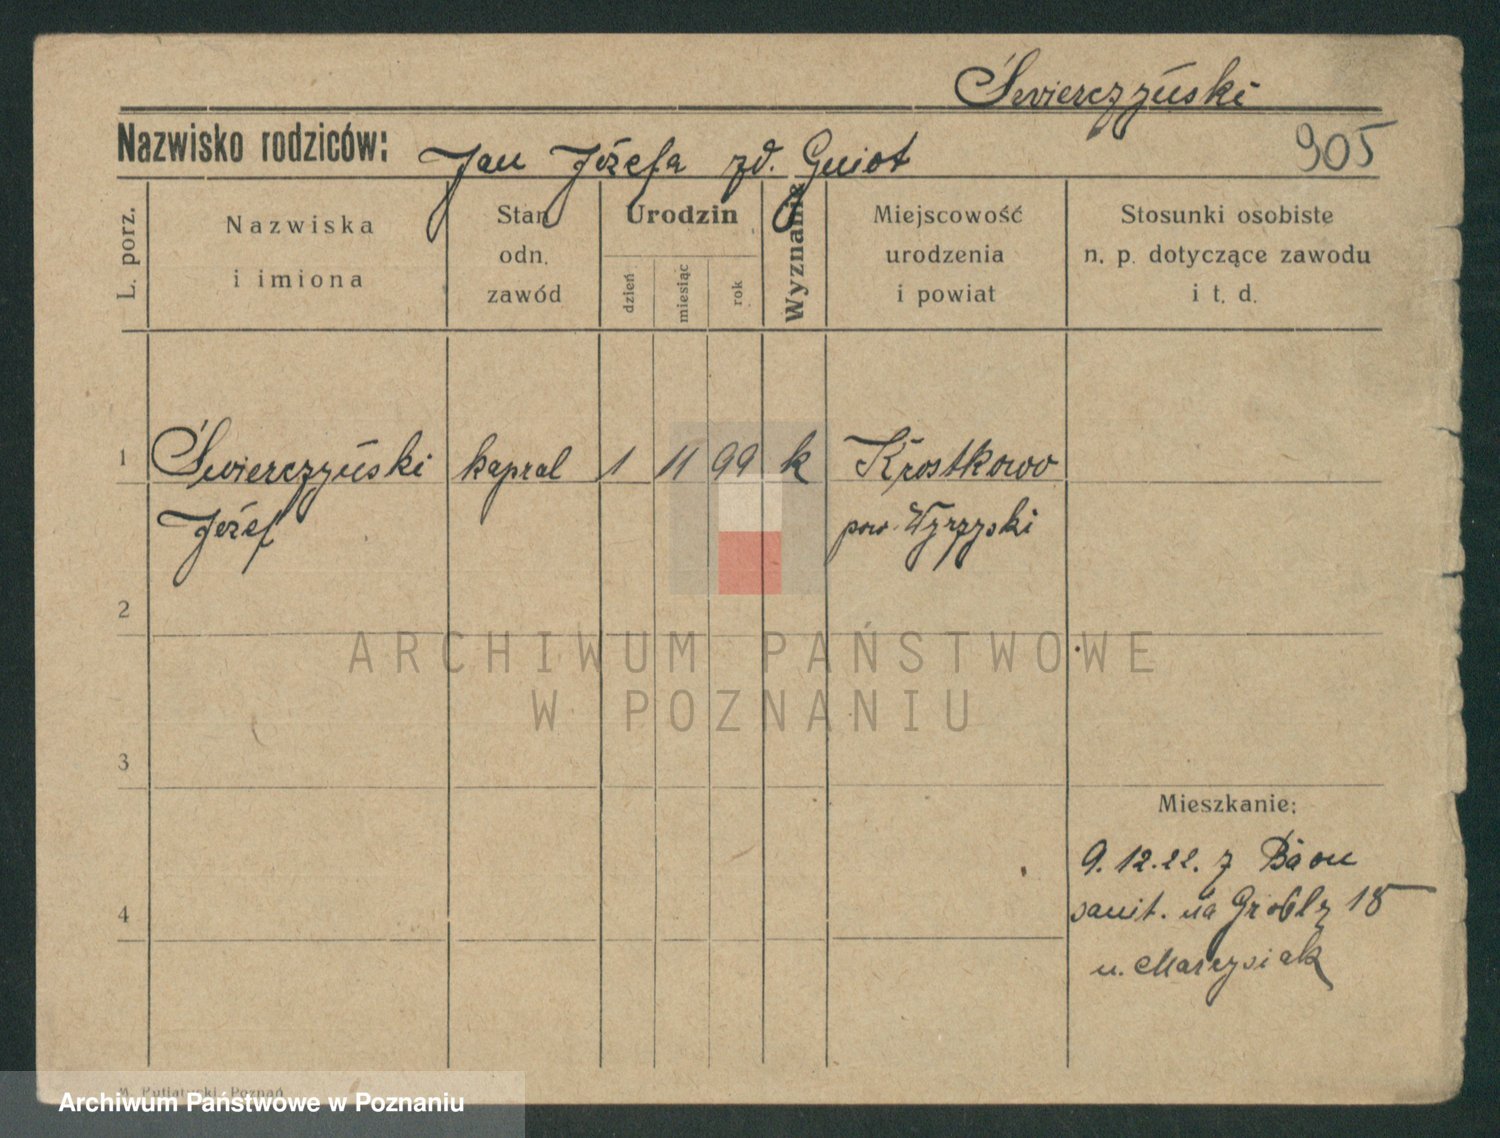 Świerczyński
905
Nazwisko rodziców: Jan Józefa zd. Gniot
L. porz.
Nazwiska i imiona
Stan odn. zawód
Urodzin
dzień
miesiąc
rok
Wyznanie
Miejscowość urodzenia i powiat
Stosunki osobiste n. p. dotyczące zawodu i t. d.
1 Świerczyński kapral 1 11 99 k Krostkowo
Józef pow. Wyrzyski
2
ARCHIWUM PAŃSTWOWE
W POZNANIU
3
Mieszkanie:
9.12.22. z Baon
4
sanit. na Groblę 18
u. Marcysiak
Poznań
Archiwum Państwowe w Poznaniu